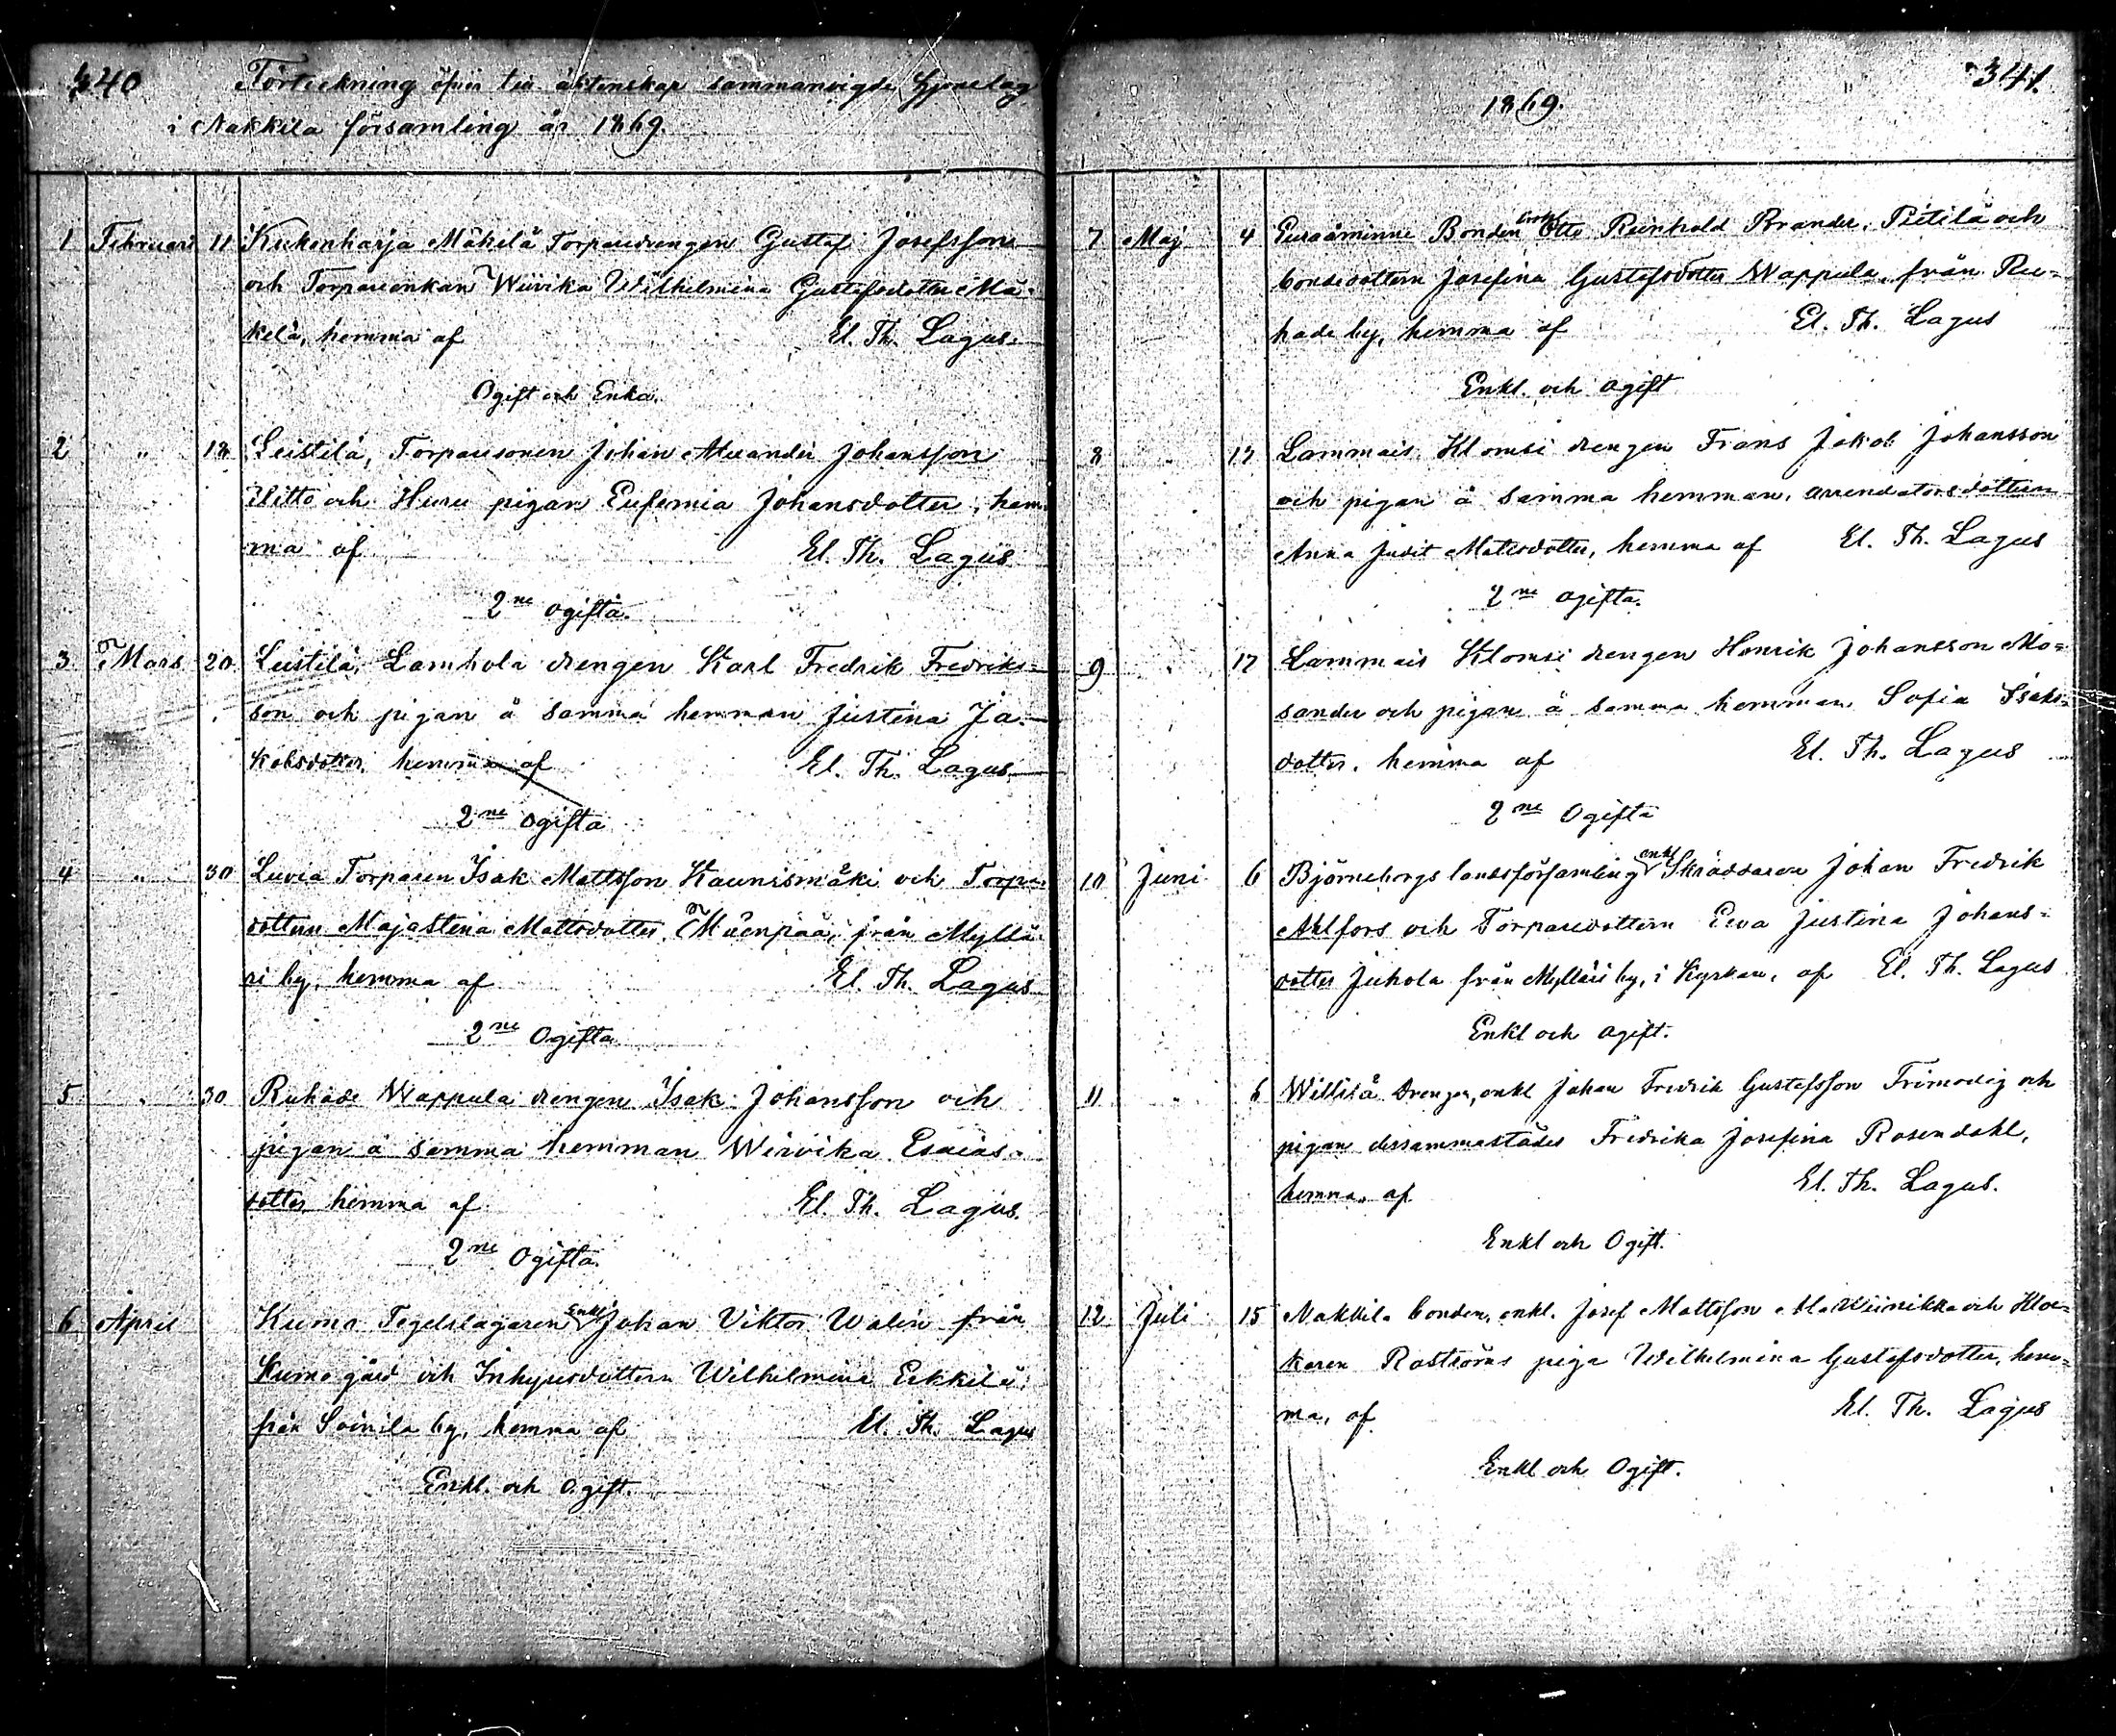 340
Förteckning öfver till äktenskap sammanvigde Hjonelag
i Nakkila församling år 1869.
1 Februari 11 Kukonharja Mäkilä Torparedrengen Gustaf Josefsson
och Torpareenkan Wiivika Wilhelmina Gustafsdotter Mä-
kelä, hemma af El. Th. Lagus.
Ogift och Enka.
2 " 18 Leistilä, Torparesonen Johan Alexander Johansson
Uitto och Huru pigan Eufemia Johansdotter, hem-
ma af El. Th. Lagus
2ne ogifta.
3 Mars 20 Leistilä, Lamhola drengen Karl Fredrik Fredriks-
son och pigan å samma hemman Justina Ja-
kobsdotter, hemma af El. Th. Lagus
2ne ogifta
4 " 30 Luvia Torparen Isak Mattsson Kaunismäki och Torp-
dottern Majastina Mattsdotter Mäenpää, från Myllä-
ri by, hemma af El. Th. Lagus
2ne Ogifta
5 " 30 Ruhade Wappula drengen Isak Johansson och
pigan å samma hemman Wiivika Esaias-
dotter hemma af El. Th. Lagus.
2ne Ogifta.
6 April Kumo Tegelslagaren Enkl Johan Viktor Walin från
Kumo gård och Inhysesdottern Wilhelmina Eekkilä,
från Soinila by, hemma af El. Th. Lagus
Enkl. och Ogift.
341.
1869.
7 Maj 4 Euraåminne Bonden Enkl Otto Reinhold Brander, Pietilä och
bondedottern Josefina Gustafsdotter Wappula, från Ru-
hade by, hemma af El. Th. Lagus
Enkl. och ogift
8 " 17 Lammais Klomsi drengen Frans Jakob Johansson
och pigan å samma hemman, arrendatorsdottern
Anna Judit Matsdotter, hemma af El. Th. Lagus
2ne ogifta.
9 " 17 Lammais Klomsi drengen Henrik Johansson Mo-
sander och pigan å samma hemman Sofia Isaks-
dotter, hemma af El. Th. Lagus
2ne Ogifta
10 Juni 6 Björneborgs landsförsamling enkl Skräddaren Johan Fredrik
Ahlfors och Torparedottern Eva Justina Johans-
dotter Juhola från Mylläri by, i Kyrkan, af El. Th. Lagus
Enkl och ogift.
11 " 6 Willilä Drengen, enkl Johan Fredrik Gustafsson Frimodig och
pigan dersammastädes Fredrika Josefina Rosendahl,
hemma, af El. Th. Lagus.
Enkl och Ogift.
12 Juli 15 Nakkila bonden, enkl. Josef Mattsson och Kloc-
karen Roströms piga Wilhelmina Gustafsdotter, hem-
ma, af El. Th. Lagus
Enkl och Ogift.